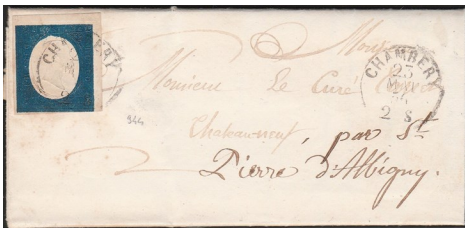 CHAMBERY
CHAMBERY
25
2 S
Monsieur Le Curé
944
Chateauneuf, par St
Pierre d'Albigny.